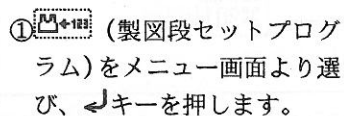 ①凹+123 (製図段セットプログ
ラム)をメニュー画面より選
び、↲キーを押します。